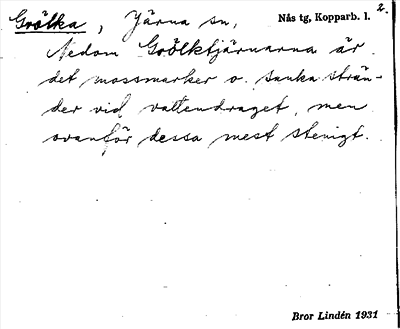 Gvölka, Järna sn, Nås tg, Kopparb. l. 2.
Nedom Gvölktjärnarna är
det mossmarker o. sanka strän-
der vid vattendraget, men
ovanför dessa mest stenigt.
Bror Lindén 1931